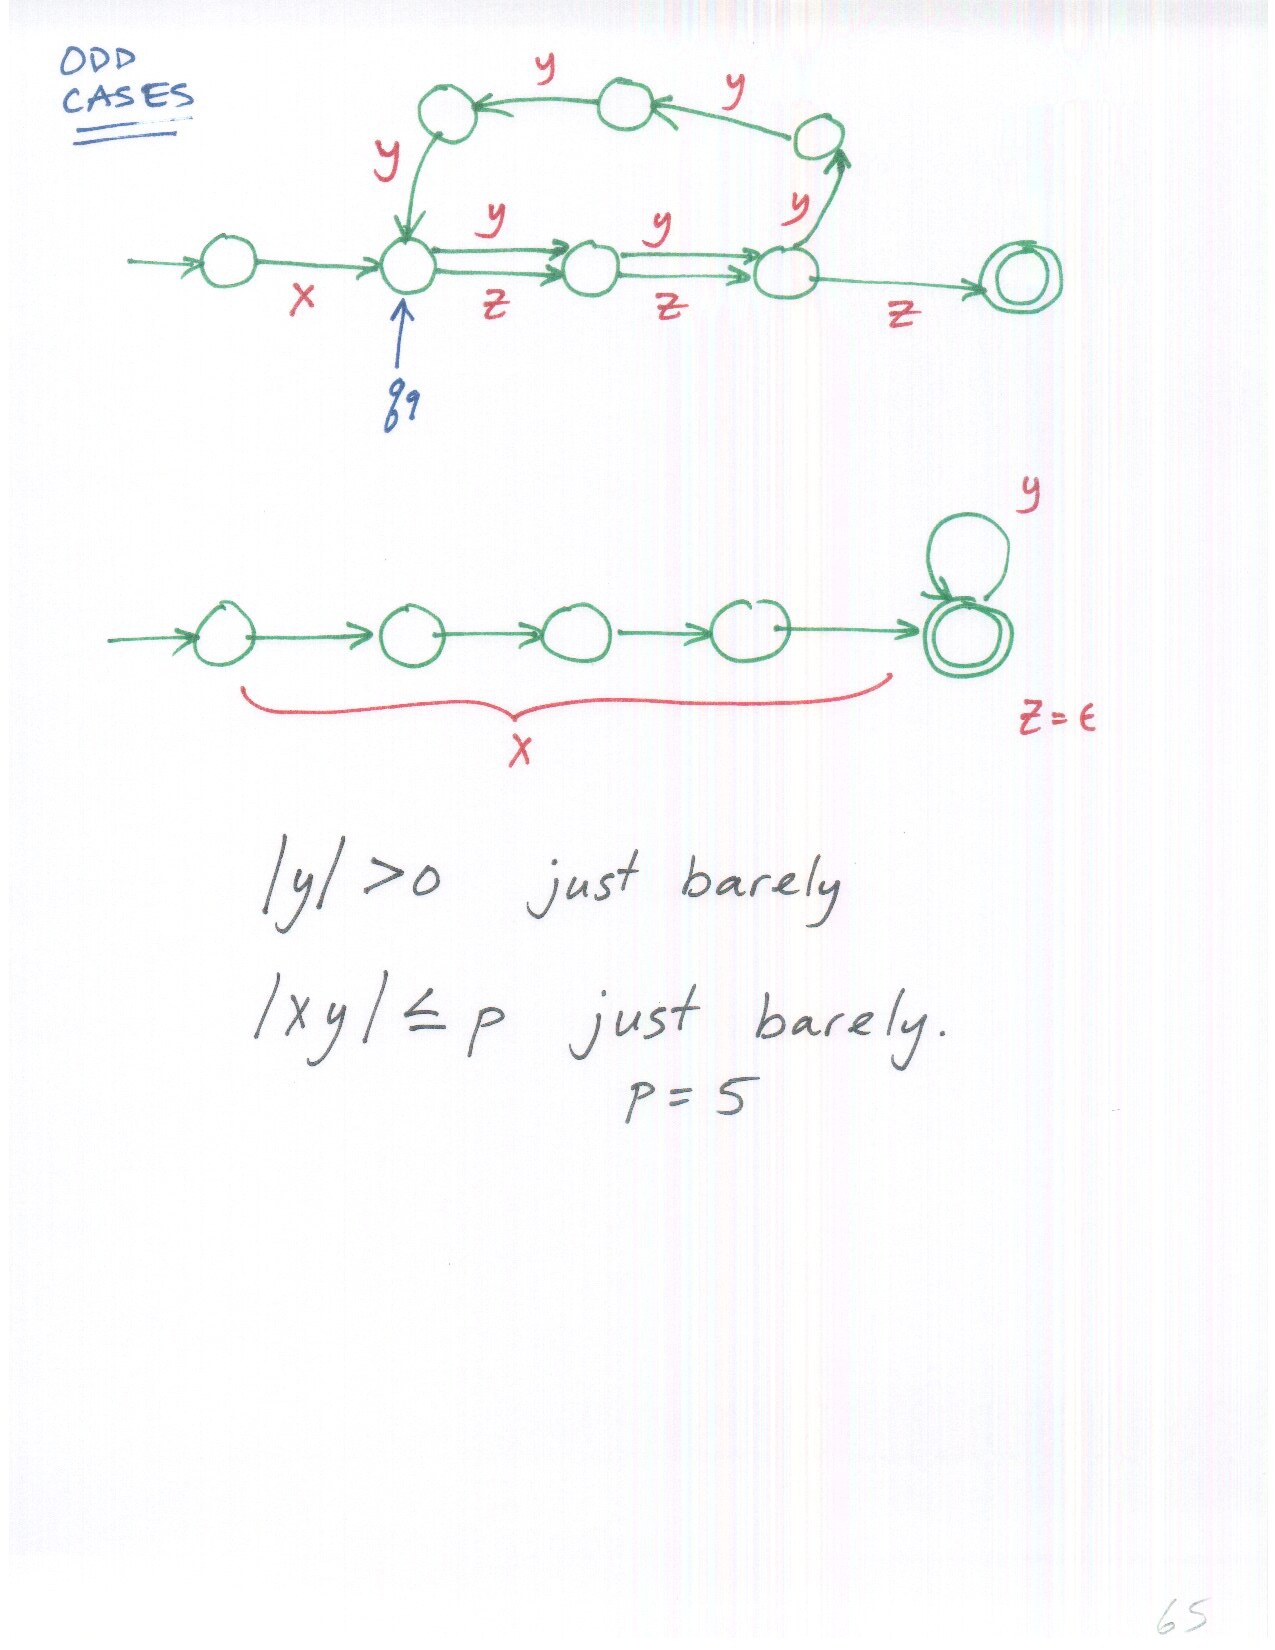 ODD
CASES
y y
y
y y y
x z z z
q9
y
x
z = ε
|y| > 0 just barely
|xy| ≤ p just barely.
p = 5
65